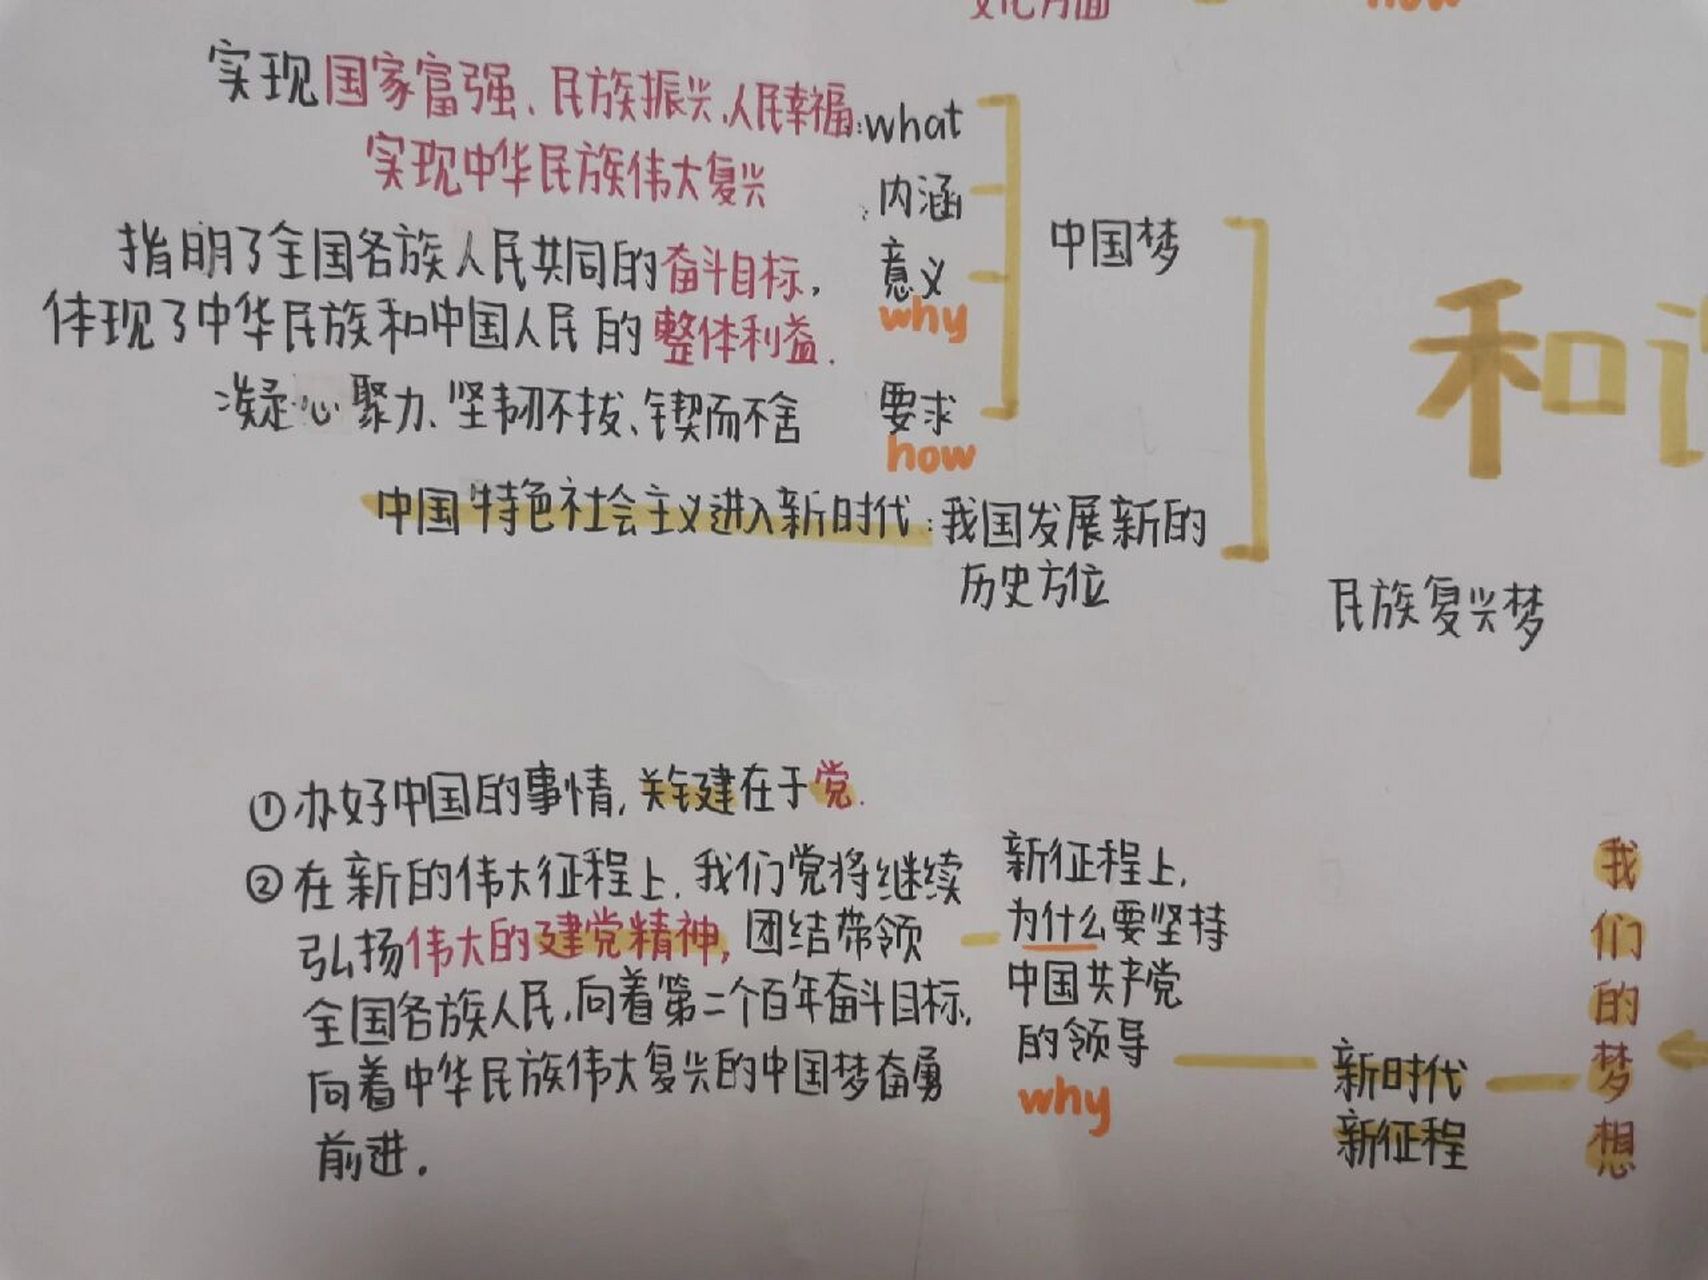 文化方面
how
实现国家富强、民族振兴、人民幸福:what
实现中华民族伟大复兴
内涵
指明了全国各族人民共同的奋斗目标,
意义
体现了中华民族和中国人民的整体利益.
why
凝心聚力、坚韧不拔、锲而不舍
要求
how
中国梦
中国特色社会主义进入新时代:我国发展新的
历史方位
和
民族复兴梦
①办好中国的事情,关键在于党.
②在新的伟大征程上,我们党将继续
弘扬伟大的建党精神,团结带领
全国各族人民,向着第二个百年奋斗目标,
向着中华民族伟大复兴的中国梦奋勇
前进.
新征程上,
为什么要坚持
中国共产党
的领导
why
新时代
新征程
我们的梦想